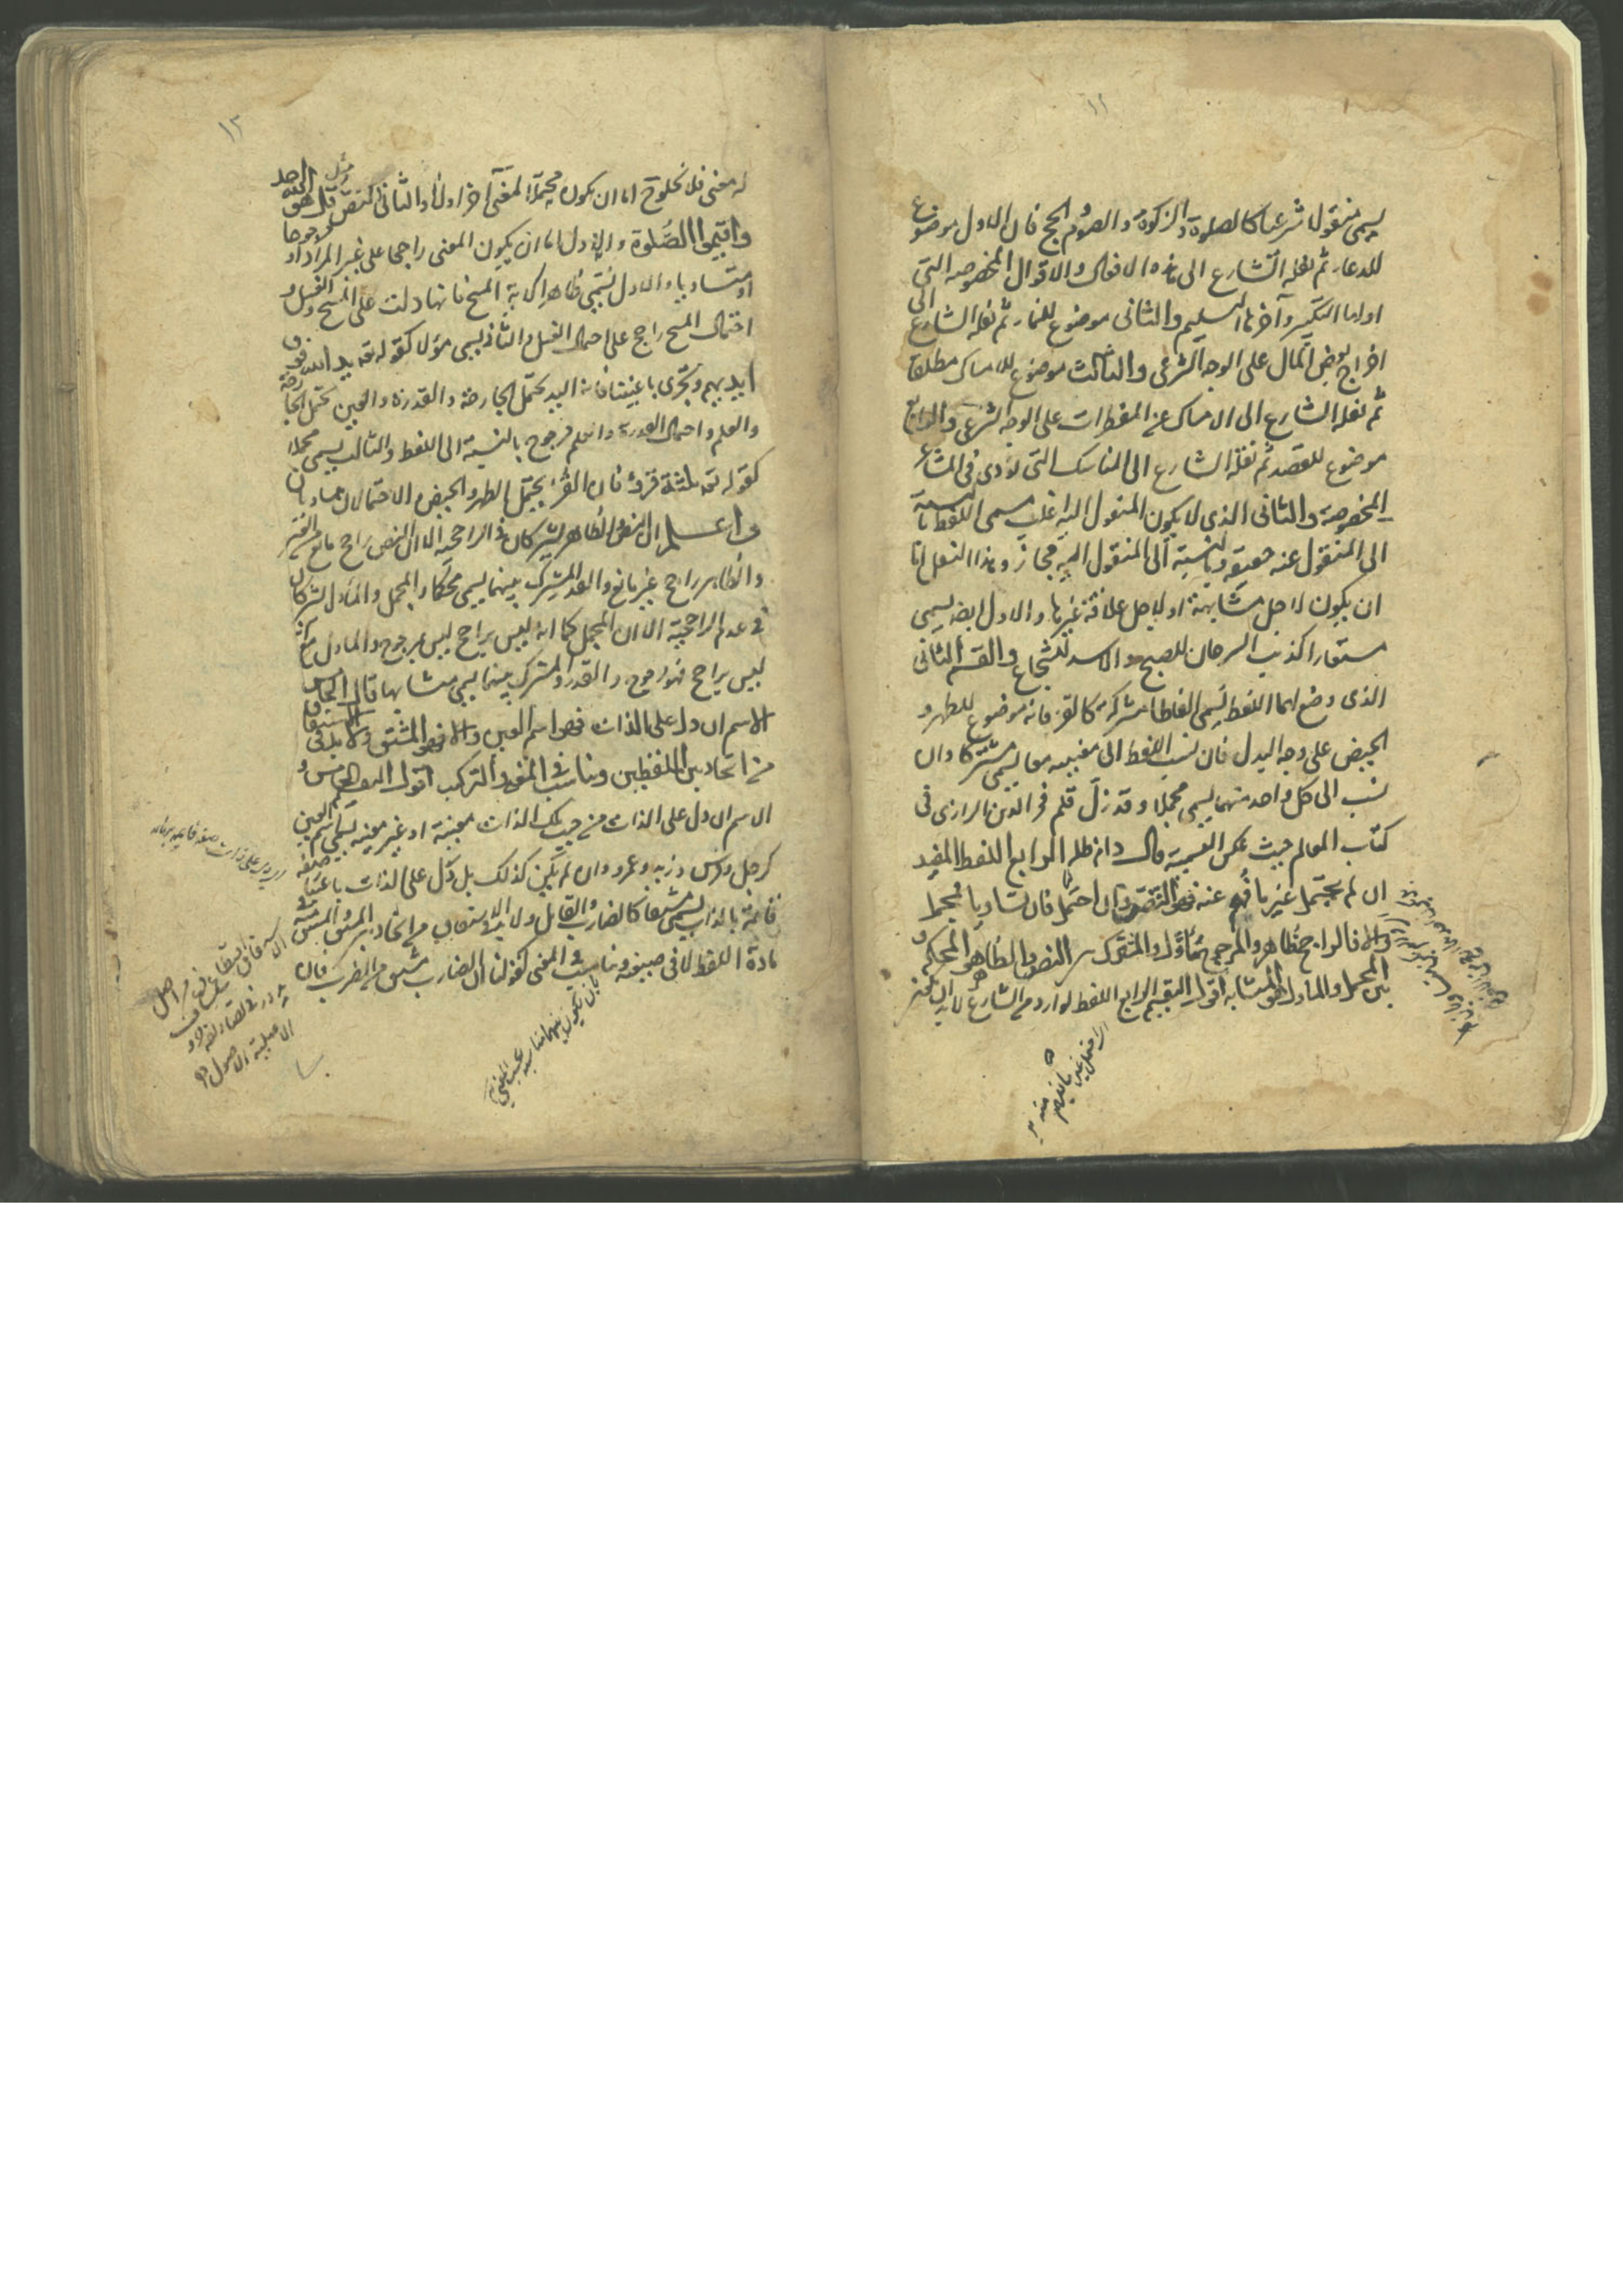 ١٢
يسمى منقولا شرعيا كالصلوة والزكوة والصوم والحج فان الاول موضوع
للدعاء ثم نقله الشارع الى هذه الافعال والاقوال المخصوصة التى
اولها التكبير وآخرها التسليم والثانى موضوع للنماء ثم نقله الشارع الى
اخراج بعض المال على الوجه الشرعى والثالث موضوع للامساك مطلقا
ثم نقله الشارع الى الامساك عن المفطرات على الوجه الشرعى والرابع
موضوع للقصد ثم نقله الشارع الى المناسك التى تؤدى فى المشاعر
المخصوصة والثانى الذى لا يكون المنقول اليه اغلب يسمى اللفظ بالنسبة
الى المنقول عنه حقيقة وبالنسبة الى المنقول اليه مجاز وهذا النقل اما
ان يكون لاجل مشابهة او لاجل علاقة غيرها والاول ايضا يسمى
مستعارا كذنب السرحان للصبح والاسد للشجاع والقسم الثانى
الذى وضع لهما اللفظ يسمى الفاظا مشتركة كالقرء فانه موضوع للطهر و
الحيض على وجه البدل فان نسب اللفظ الى معنييه معا يسمى مشتركا وان
نسب الى كل واحد منهما يسمى مجملا وقد زل قلم فخر الدين الرازى فى
كتاب المعالم حيث عكس القسمية قال دام ظله الرابع اللفظ المفيد
ان لم يحتمل غير ما فهم عنه فهو النص وان احتمل فان تساويا فمجمل
والا فالراجح ظاهر والمرجوح مأول والمشترك بين النص والظاهر هو المحكم و
بين المجمل والمأول هو المتشابه اقول التقسيم الرابع اللفظ الوارد من الشارع لا بد ان يكون
١٣
له معنى فلا يخلوا اما ان يكون محتملا لمعنى آخر اولا والثانى النص مثل قل هو الله احد
واقيموا الصلوة والاول اما ان يكون المعنى راجحا على غير المراد او مرجوحا
او متساويا والاول يسمى ظاهرا كاية المسح فانها دلت على المسح والغسل و
احتمال المسح راجح على احتمال الغسل والثانى يسمى مؤلا كقوله تعه يد الله فوق
ايديهم وتجرى باعيننا فان اليد تحتمل الجارحة والقدرة والعين تحتمل الجارحة
والعلم واحتمال القدرة والعلم مرجوح بالنسبة الى اللفظ والثالث يسمى مجملا
كقوله تعه ثلثة قروء فان القرء يحتمل الطهر والحيض والاحتمالان متساويان
واعلم ان النص والظاهر يشتركان فى الراجحية الا ان النص راجح مانع من النقيض
والظاهر راجح غير مانع والقدر المشترك بينهما يسمى محكما والمجمل والمأول يشتركان
فى عدم الراجحية الا ان المجمل كما انه ليس براجح ليس بمرجوح والمأول مع انه
ليس براجح فهو مرجوح والقدر المشترك بينهما يسمى متشابها قال الخامس
الاسم ان دل على الذات فهو اسم العين والا فهو المشتق ولا بد فى الاشتقاق
من اتحاد بين اللفظين وتناسب فى المعنى والتركيب اقول التقسيم الخامس و
الاسم ان دل على الذات من حيث تلك الذات معينة او غير معينة يسمى اسم العين
كرجل وفرس وزيد وعمرو وان لم يكن كذلك بل دل على الذات باعتبار صفة
قائمة بالذات يسمى مشتقا كالضارب والقاتل ولا بد فى الاشتقاق من اتحاد المشتق والمشتق منه فى
مادة اللفظ لا فى صيغه وتناسب فى المعنى كقولنا ان الضارب مشتق من الضرب فان
بان يكون بينهما مناسبة بحسب المعنى